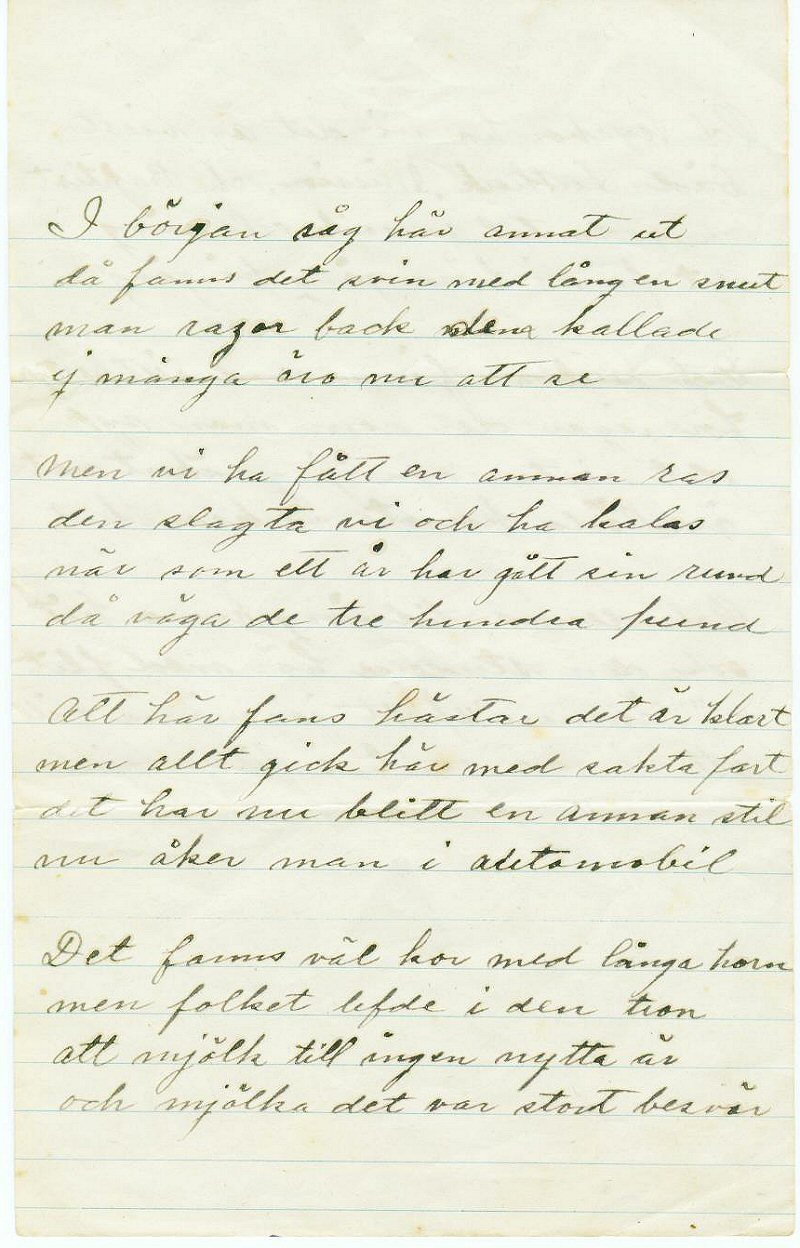 I början såg här annat ut
då fanns det svin med lång en snut
man razor back dem kallade
ej många äro nu att se
Men vi ha fått en annan ras
den slagta vi och ha kalas
när som ett år har gått sin rund
då väga de tre hundra pund
Att här fans hästar det är klart
men allt gick här med sakta fart
det har nu blitt en annan stil
nu åker man i automobil
Det fanns väl kor med långa horn
men folket lefde i den tron
att mjölk till ingen nytta är
och mjölka det var stort besvär